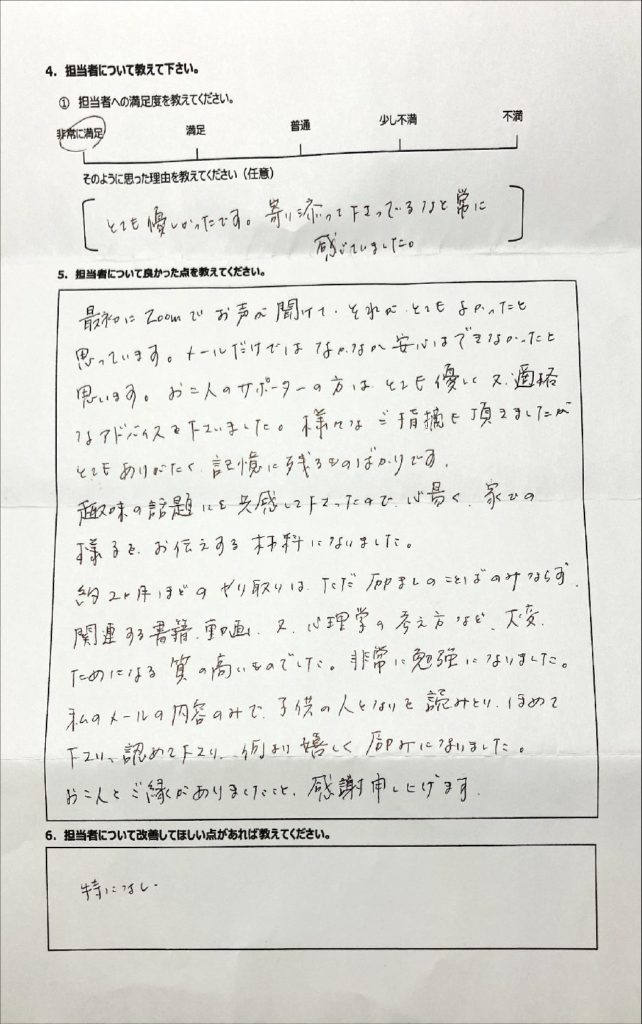 4. 担当者について教えて下さい。
① 担当者への満足度を教えてください。
非常に満足 満足 普通 少し不満 不満
そのように思った理由を教えてください（任意）
とても優しかったです。寄り添って下さっているなと常に
感じていました。
5. 担当者について良かった点を教えてください。
最初にZoomでお声が聞けて、それが、とてもよかったと
思っています。メールだけではなかなか安心はできなかったと
思います。お二人のサポーターの方はとても優しく又、適格
なアドバイスを下さいました。様々なご指摘も頂きましたが
とてもありがたく、記憶に残るものばかりです。
趣味の話題にも共感して下さったので、心易く、家での
様子を、お伝えする材料になりました。
約2ヶ月ほどのやり取りは、ただ励ましのことばのみならず、
関連する書籍、動画、又、心理学の考え方など、大変、
ためになる質の高いものでした。非常に勉強になりました。
私のメールの内容のみで、子供の人となりを読みとり、ほめて
下さり、認めて下さり、何より嬉しく励みになりました。
お二人とご縁がありましたこと、感謝申し上げます。
6. 担当者について改善してほしい点があれば教えてください。
特になし